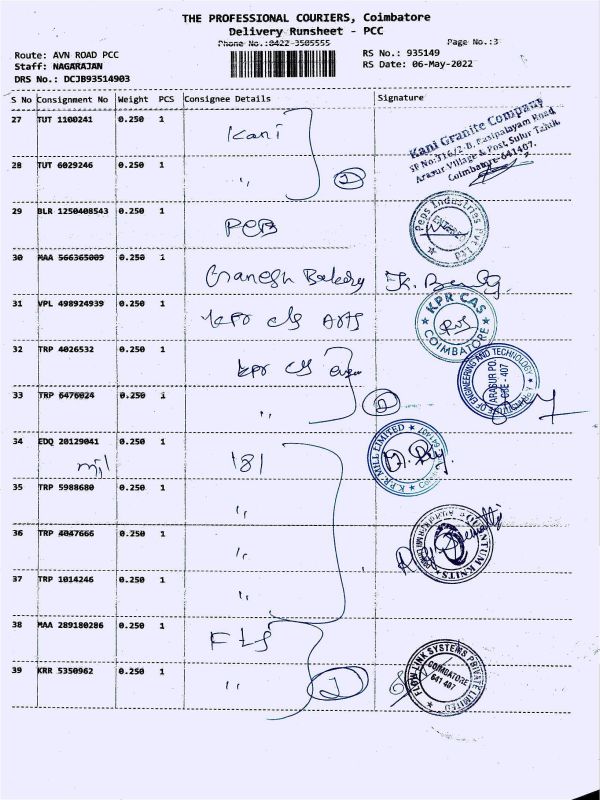 THE PROFESSIONAL COURIERS, Coimbatore
Delivery Runsheet - PCC
Phone No.:0422-3505555
Page No.:3
Route: AVN ROAD PCC
RS No.: 935149
Staff: NAGARAJAN
RS Date: 06-May-2022
DRS No.: DCJB93514903
S No Consignment No Weight PCS Consignee Details Signature
27 TUT 1100241 0.250 1 Kani
Kani Granite Company
SF No:316/2-B, Rasipalayam Road,
Arasur Village & Post, Sulur Taluk,
Coimbatore-641407.
28 TUT 6029246 0.250 1 〃 2
29 BLR 1250408543 0.250 1 PCB
Peps Industries Pvt Ltd
30 MAA 566365009 0.250 1 Ganesh Bakery
31 VPL 498924939 0.250 1 KPR clg Arts
KPR CAS
COIMBATORE
32 TRP 4026532 0.250 1 KPR clg
OF ENGINEERING AND TECHNOLOGY
ARASUR PO.
CBE - 407
33 TRP 6476024 0.250 1 〃 2
34 EDQ 20129041 0.250 1 181
mil
K.P.R. MILL LIMITED
35 TRP 5988680 0.250 1 〃
36 TRP 4047666 0.250 1 〃
QUANTUM KNITS
37 TRP 1014246 0.250 1 〃
38 MAA 289180286 0.250 1 FLS
39 KRR 5350962 0.250 1 〃 2
FLOW LINK SYSTEMS PRIVATE LIMITED
COIMBATORE
641 407